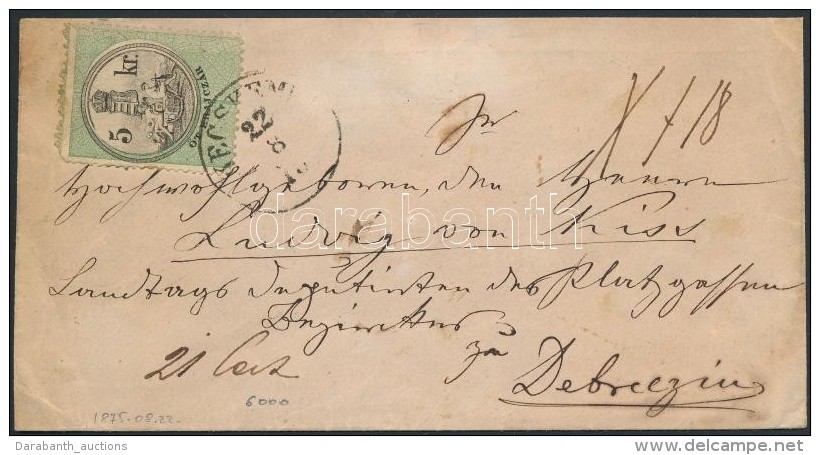 5 kr.
KECSKEM
22
8
Sr
Hochwohlgeboren, den Herrn
Ludwig von Kiss
Landtags Deputirten des Platzgassen
Bezirkes
zu
Debreczin
21 Cent
6000
1875.08.22.
darabanth
Darabanth_auctions
www.delcampe.net